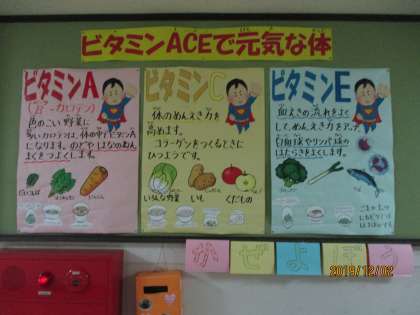 ビタミンACEで元気な体
ビタミンA
(β-カロテン)
色のこい野菜に
多いカロテンは、体の中でビタミンA
になります。のどやはなのねん
まくをつよくします。
ほうれんそう
にんじん
ビタミンC
体のめんえき力を
高めます。
コラーゲンをつくるときに
ひつようです。
いろんな野菜
いも
くだもの
ビタミンE
血えきの流れをよく
して、めんえき力をアップ。
白血球やリンパ球の
はたらきをよくします。
かぜよぼう
2019/12/02